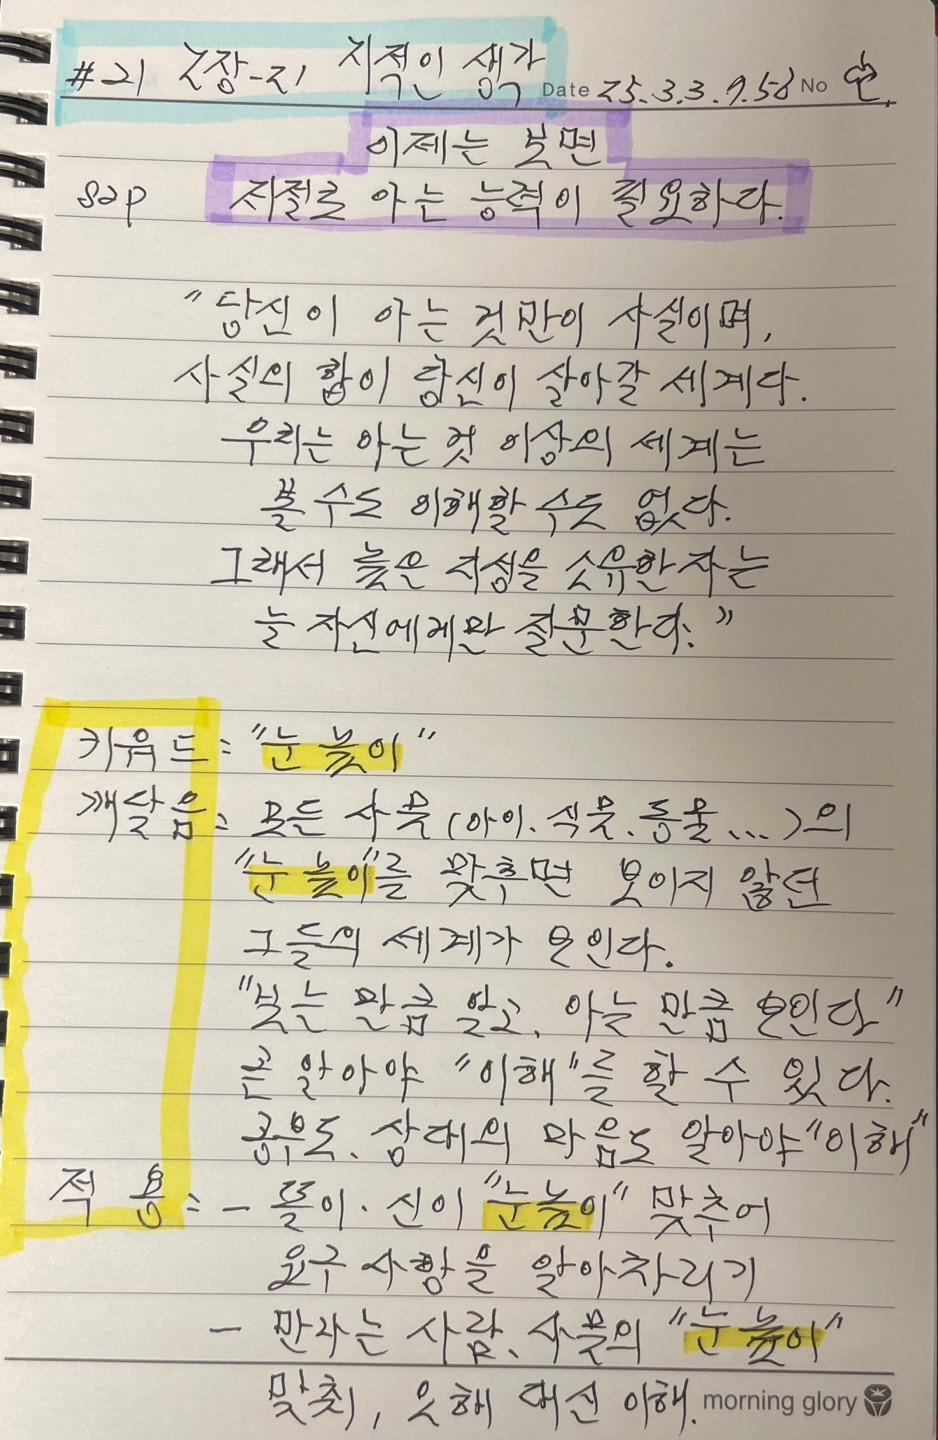 #21 2장-21 지적인 생각
Date 25.3.3.9.58 No
이제는 보면
저절로 아는 능력이 필요하다.
"당신이 아는 것만이 사실이며,
사실의 합이 당신이 살아갈 세계다.
우리는 아는 것 이상의 세계는
볼 수도 이해할 수도 없다.
그래서 높은 지성을 소유한 자는
늘 자신에게만 질문한다."
키워드 = "눈높이"
깨달음 = 모든 사물(아이.식물.동물...)의
"눈높이"를 맞추면 보이지 않던
그들의 세계가 보인다.
"보는 만큼 알고, 아는 만큼 보인다"
은 알아야 "이해"를 할 수 있다.
공부도, 상대의 마음도 알아야 "이해"
적용 = - 뜰이.신이 "눈높이" 맞추어
요구사항을 알아차리기
- 만나는 사람, 사물의 "눈높이"
맞춰, 오해 대신 이해.
morning glory